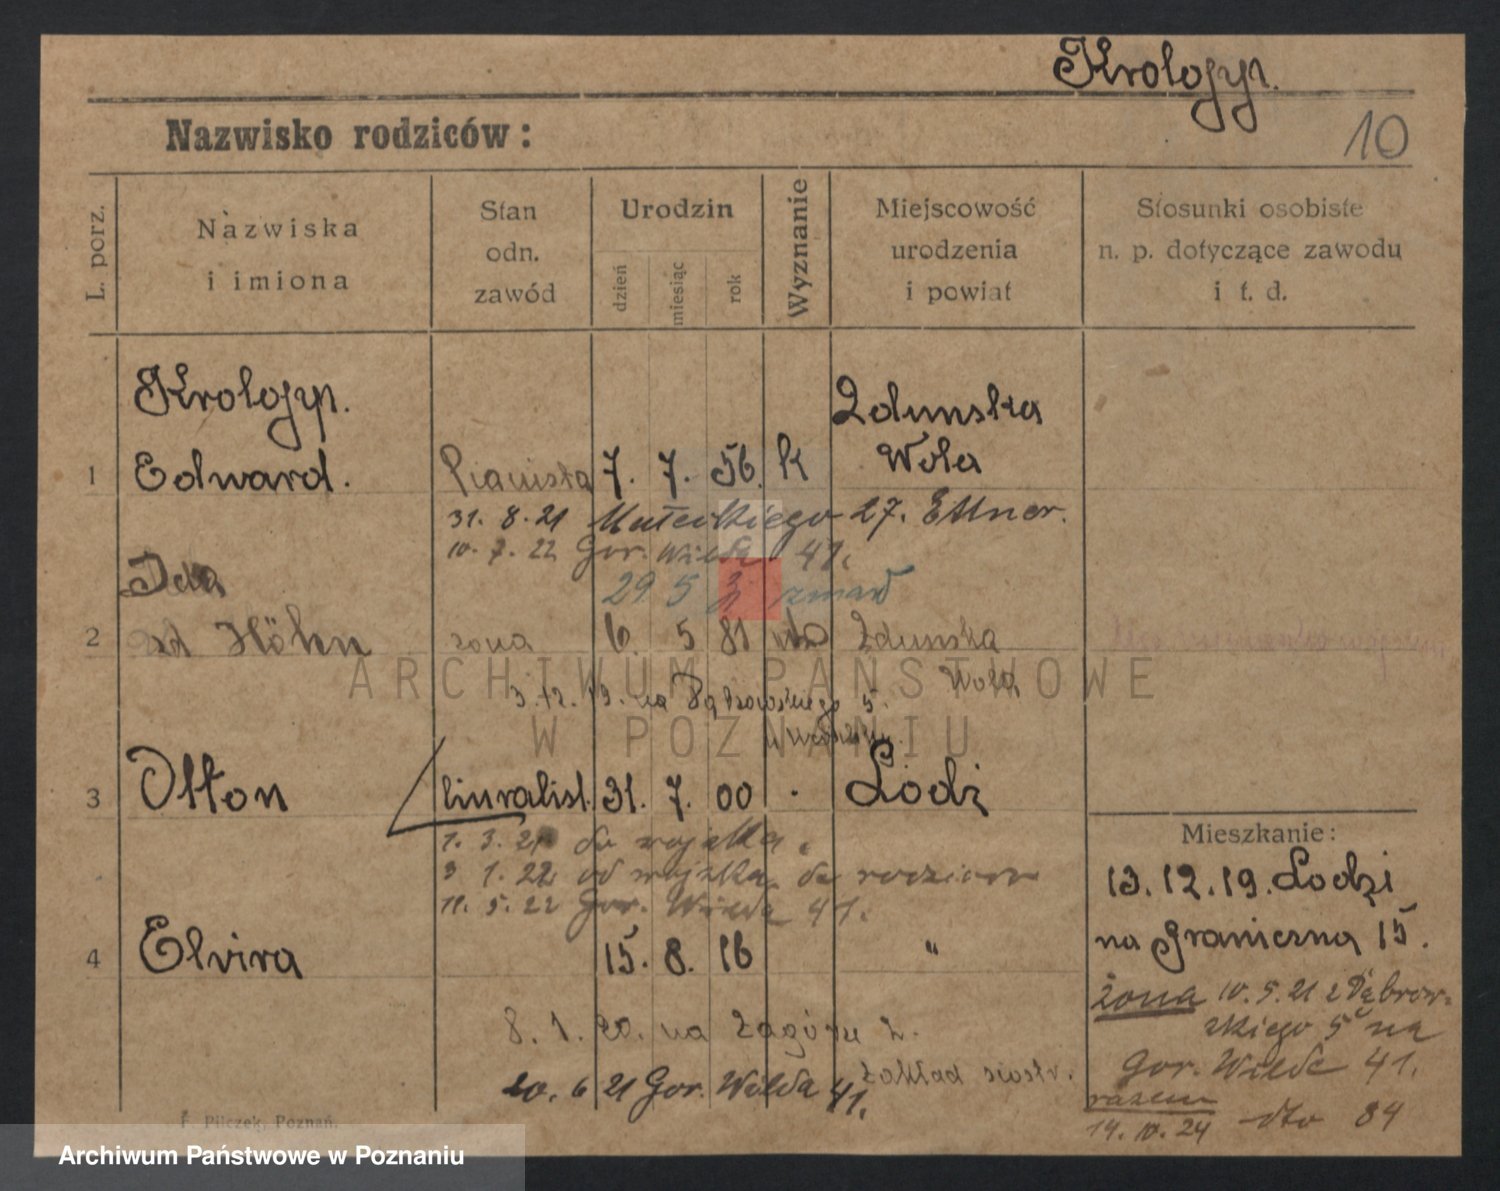 Krologyp.
10
Nazwisko rodziców:
L. porz.
Nazwiska
i imiona
Stan
odn.
zawód
Urodzin
dzień
miesiąc
rok
Wyznanie
Miejscowość
urodzenia
i powiat
Stosunki osobiste
n. p. dotyczące zawodu
i t. d.
Krologyp.
1 Edward. Pianista 7. 7. 56. k Zdunska Wola
31. 8. 21 27. Ettner.
10. 7. 22 Gor. Wilda 41.
29 5 zmarł
Ida
2 Höhn żona 6. 5 81 Zdunska Wola
3. 12. 19. na 5.
3 Otton 31. 7. 00 . Łodź
1. 3. 21 do wojska.
3 1. 22 od wojska do rodziców
11. 5. 22 Gor. Wilda 41.
4 Elvira 15. 8. 16 "
8. 1. 20. na Zagórze 2.
Zakład siostr.
20. 6 21 Gor. Wilda 41.
Mieszkanie:
13. 12. 19. Lodzi
na Graniczna 15.
żona 10. 5. 21 z Dąbrow-
skiego 5 na
Gor. Wilde 41.
razem
14. 10. 24 dto 84
F. Pilczek, Poznań.
ARCHIWUM PAŃSTWOWE
W POZNANIU
Archiwum Państwowe w Poznaniu